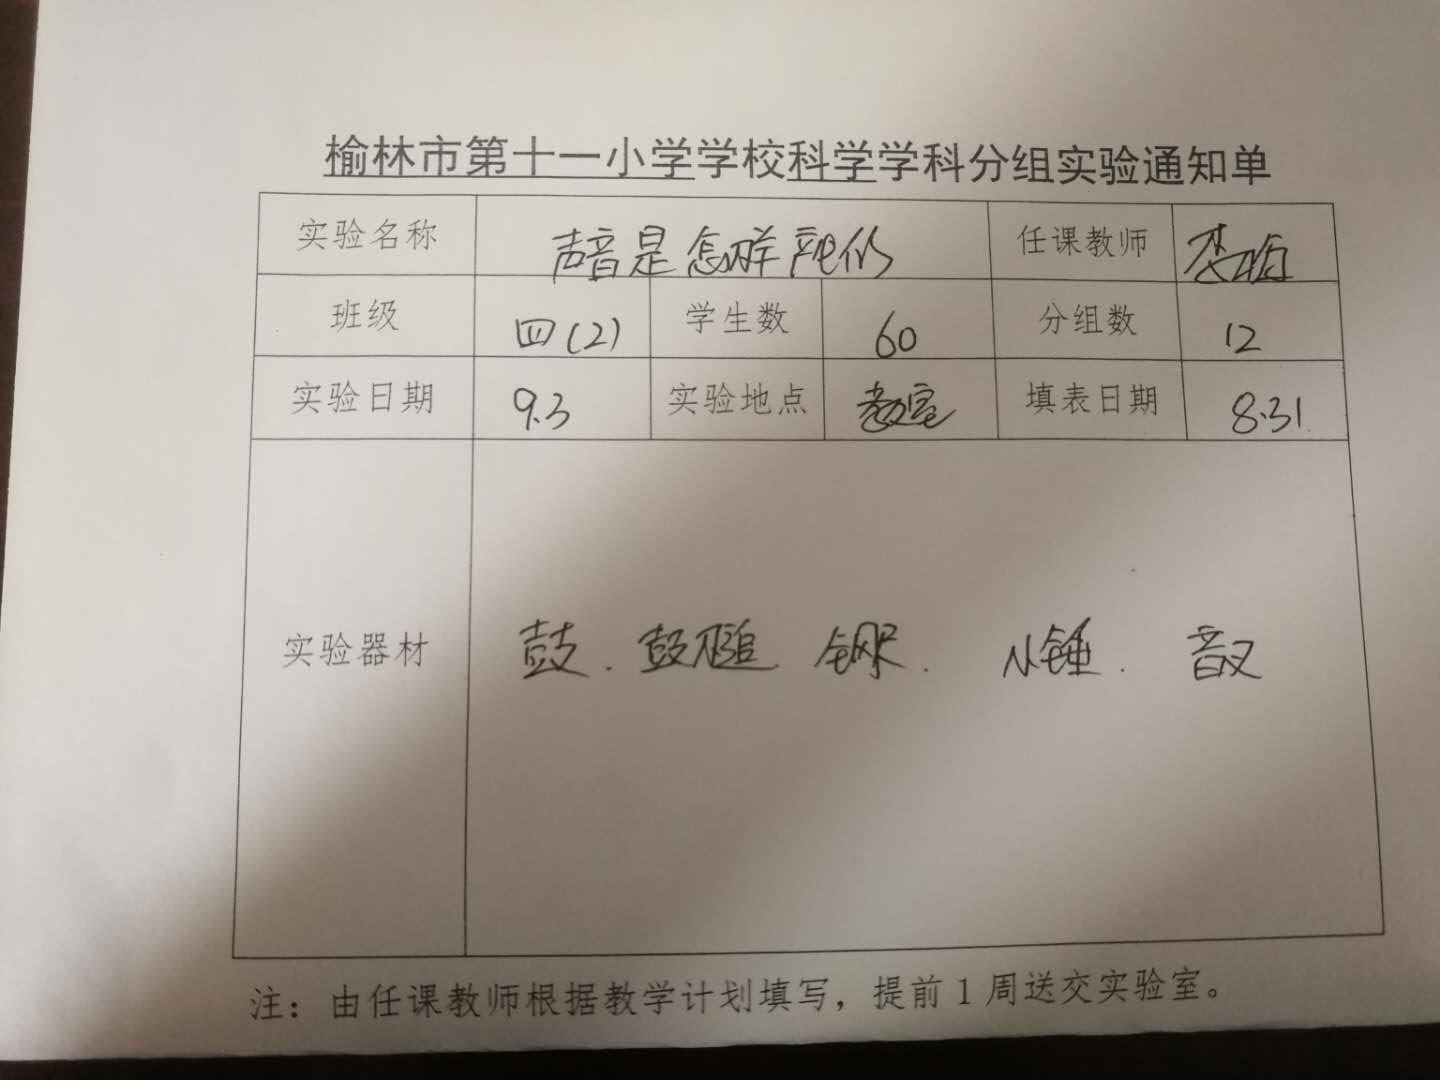 榆林市第十一小学学校科学学科分组实验通知单
实验名称 声音是怎样产生的 任课教师 李梅
班级 四(2) 学生数 60 分组数 12
实验日期 9.3 实验地点 教室 填表日期 8.31
实验器材 鼓. 鼓槌 钢尺. 小锤. 音叉
注：由任课教师根据教学计划填写，提前1周送交实验室。